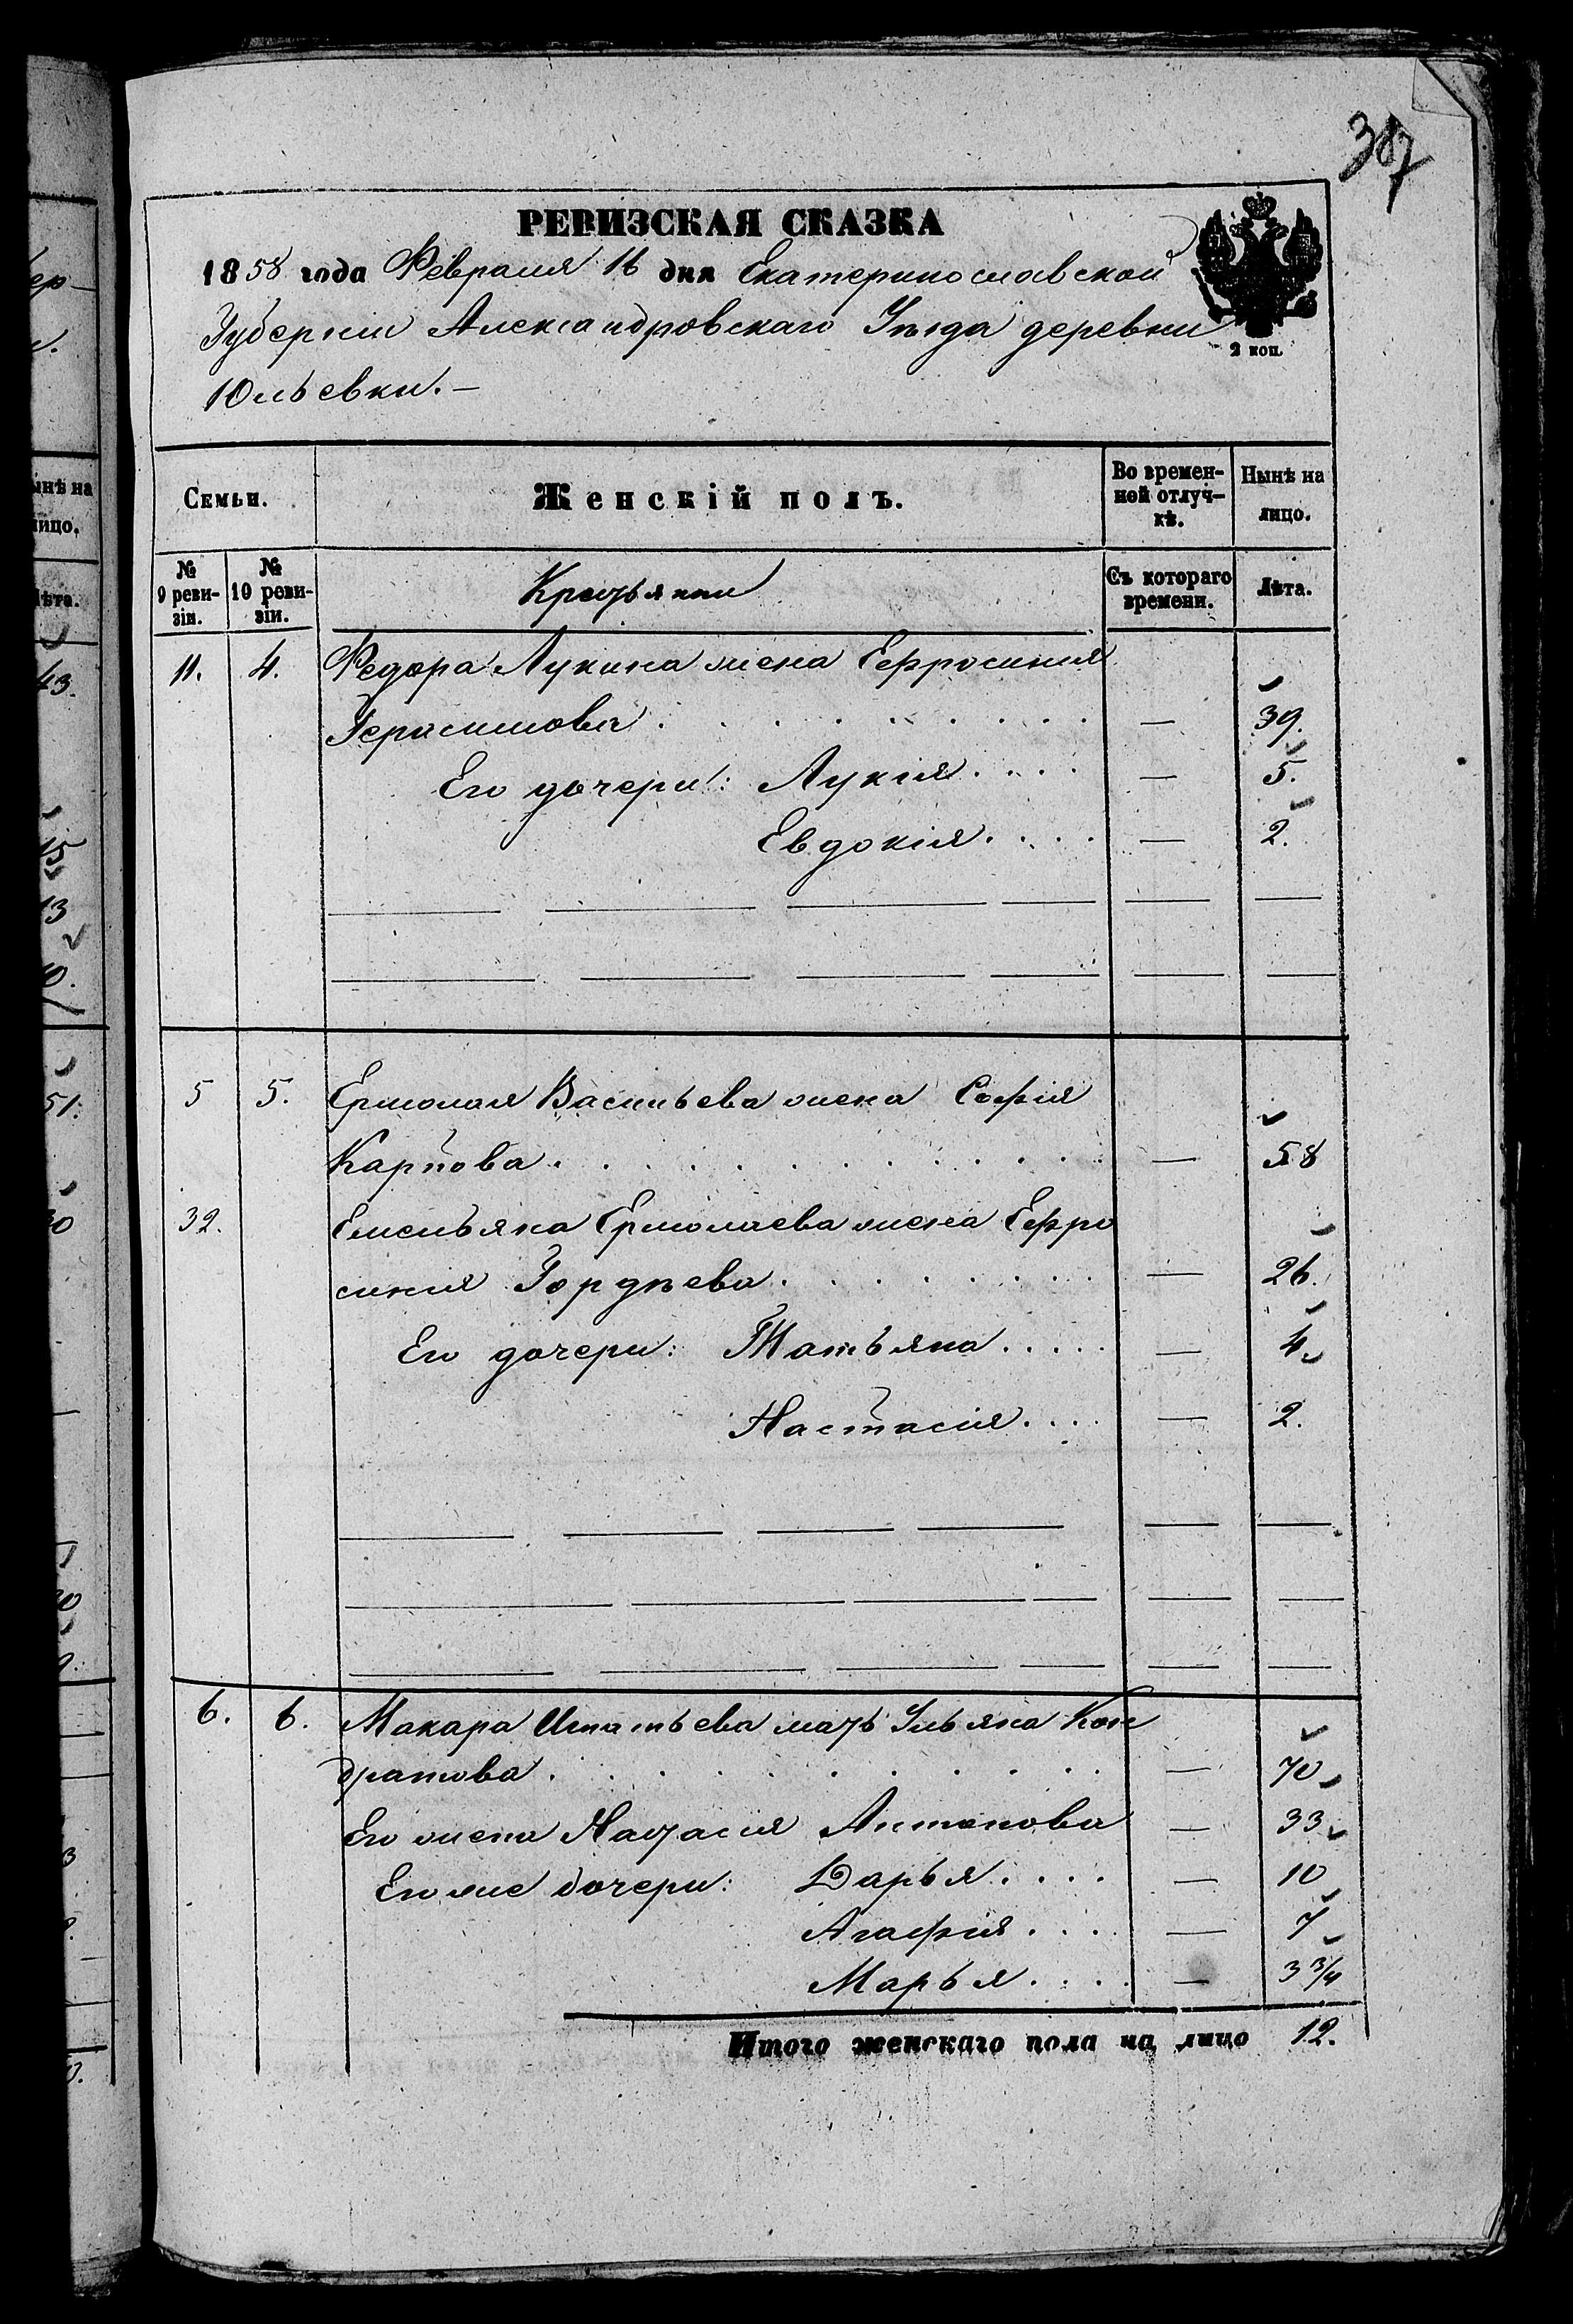 387
РЕВИЗСКАЯ СКАЗКА
1858 года Февраля 16 дня Екатеринославской
Губерніи Александровскаго Уѣзда деревни
2 коп.
Юльевки.—
Семьи. Женскій полъ. Во времен-ной отлуч-кѣ. Нынѣ на лицо.
№ 9 реви-зіи. № 10 реви-зіи. Крестьянки Съ котораго времени. Лѣта.
11. 4. Федора Лукина жена Ефросинія
Герасимова — 39.
Его дочери: Лукія — 5.
Евдокія — 2.
5 5. Ермолая Васильева жена Софія
Карпова — 58
32. Емельяна Ермолаева жена Ефро
синія Гордѣева — 26.
Его дочери: Татьяна — 4
Настасія — 2.
6. 6. Макара Игнатьева мать Ульяна Кон
дратова — 70
Его жена Настасія Антонова — 33
Его же дочери: Дарья — 10
Агафія — 7
Марья — 3 3/4
Итого женскаго пола на лицо 12.